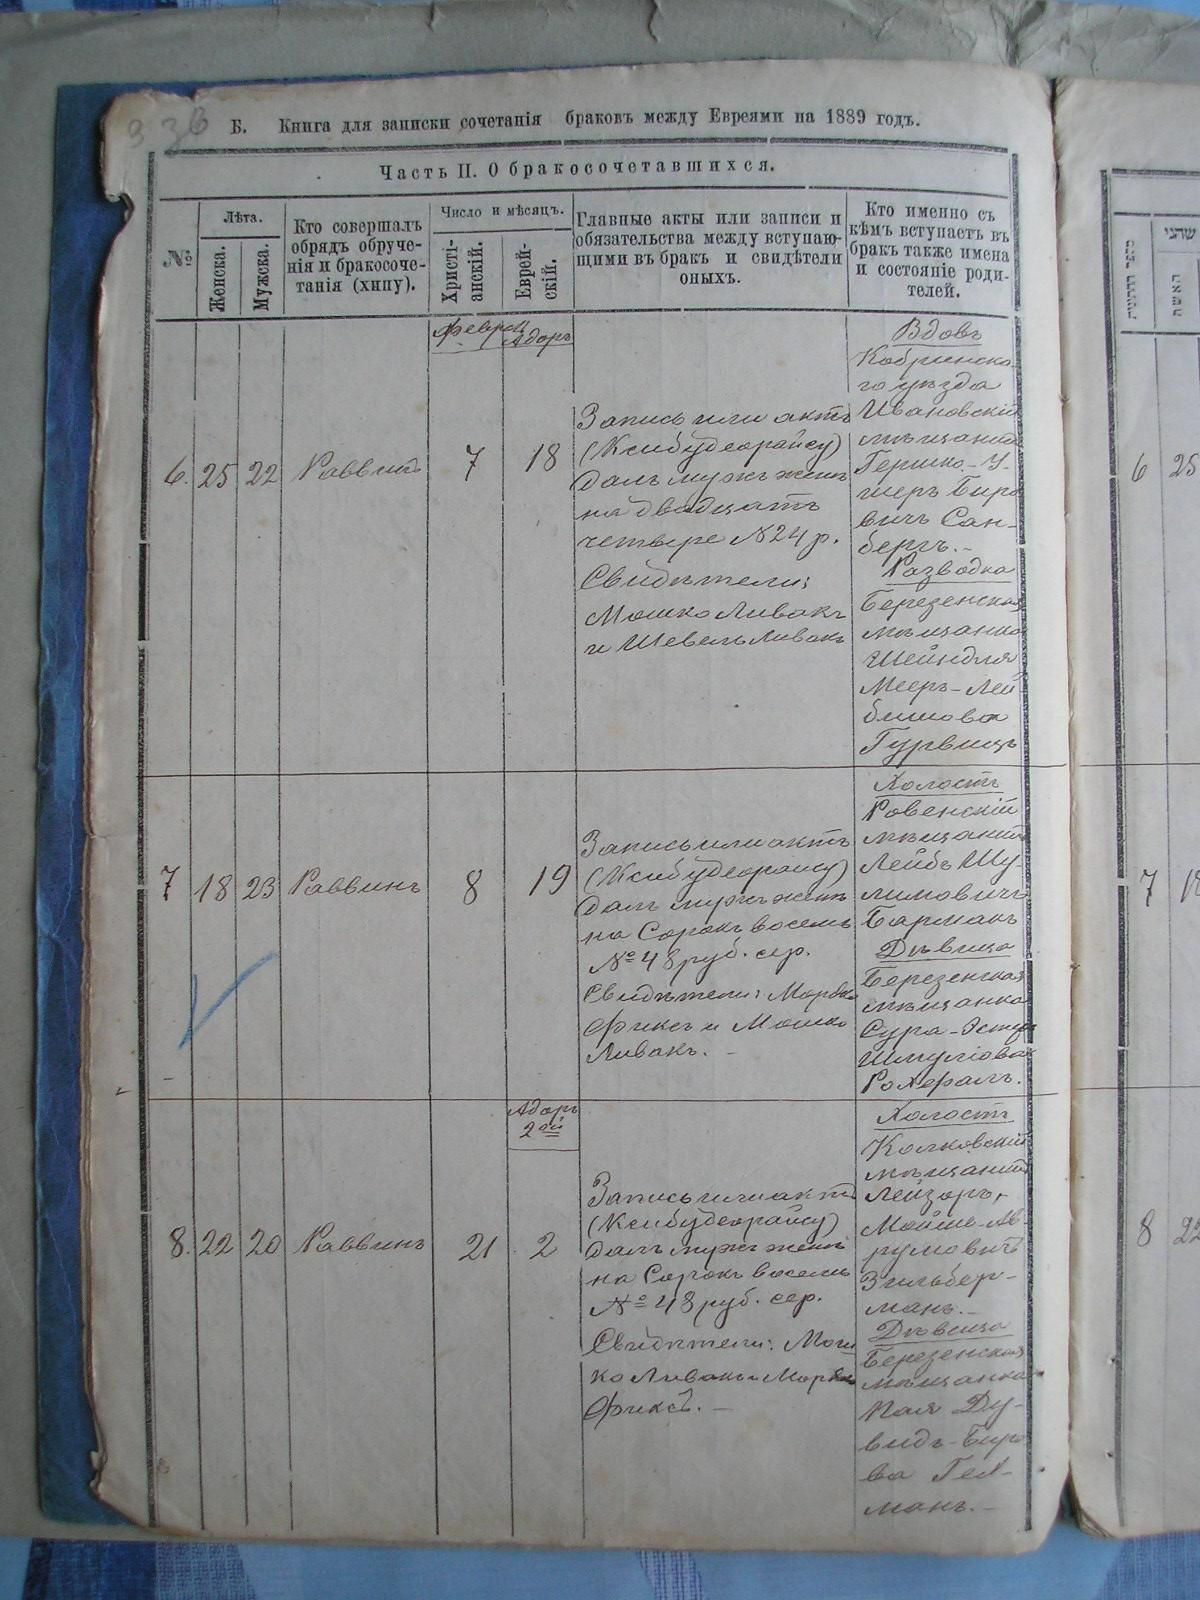 336
Б. Книга для записки сочетанія браковъ между Евреями на 1889 годъ.
Часть II. О бракосочетавшихся.
№
Лѣта.
Женска.
Мужска.
Кто совершалъ
обрядъ обруче-
нія и бракосоче-
танія (хипу).
Число и мѣсяцъ.
Христі-
анскій.
Еврей-
скій.
Главные акты или записи и
обязательства между вступаю-
щими въ бракъ и свидѣтели
оныхъ.
Кто именно съ
кѣмъ вступаетъ въ
бракъ также имена
и состояніе роди-
телей.
Адаръ
6. 25 22 Раввинъ 7 18
Запись или актъ
(Ксибудеорайсу)
далъ мужъ женѣ
на двадцать
четыре №24 р.
Свидѣтели:
Мошко Ливакъ
и Шевель Ливакъ
Вдовъ
Кобринска-
го уѣзда
Ивановскій
мѣщанинъ
Гершко-У-
шеръ Биро
вичъ Сан-
бергъ.-
Разводка
Березенская
мѣщанка
Шейндля
Мееръ-Лей
бишова
Гурвицъ
7 18 23 Раввинъ 8 19
Запись или актъ
(Ксибудеорайсу)
далъ мужъ женѣ
на Сорокъ восемь
№48 руб. сер.
Свидѣтели: Мордко
Фиксъ и Мошко
Ливакъ. -
Холостъ
Ровенскій
мѣщанинъ
Лейбъ Шу-
лимовичъ
Бармакъ
Дѣвица
Березенская
мѣщанка
Сура-Эстеръ
Шмуліова
8. 22 20 Раввинъ 21 2
Адаръ
2ой
Запись или актъ
(Ксибудеорайсу)
далъ мужъ женѣ
на Сорокъ восемь
№48 руб. сер.
Свидѣтели: Мош
ко Ливакъ и Мордко
Фиксъ. -
Холостъ
Колковскій
мѣщанинъ
Лейзоръ-
Мойше-Ав-
румовичъ
Зильбер-
манъ.-
Дѣвица
Березенская
мѣщанка
Пая Ду-
видъ-Биро
ва Гел-
манъ.-
6 25
7 18
8 22